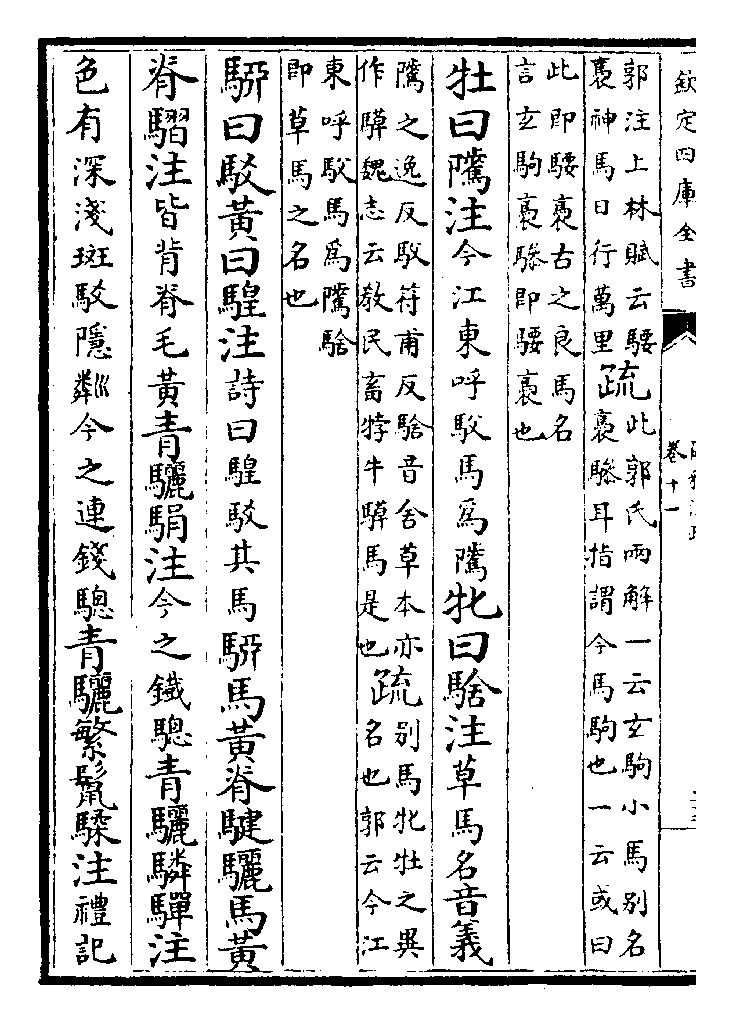 欽定四庫全書
卷十一
郭注上林賦云騕
褭神馬日行萬里
疏
此郭氏兩解一云玄駒小馬别名
褭驂耳指謂今馬駒也一云或曰
此即騕褭古之良馬名
言玄駒褭驂即騕褭也
牡曰隲注今江東呼駁馬爲隲牝曰騇注草馬名音義
隲之逸反駁符甫反騇音舍草本亦
作騲魏志云教民畜牸牛騲馬是也
疏
别馬牝牡之異
名也郭云今江
東呼駁馬爲隲騇
即草馬之名也
駵曰駁黃曰騜注詩曰騜駁其馬駵馬黃脊騝驪馬黃
脊騽注皆背脊毛黃青驪駽注今之鐵驄青驪驎驒注
色有深淺斑駁隱粼今之連錢驄青驪繁鬛騥注禮記